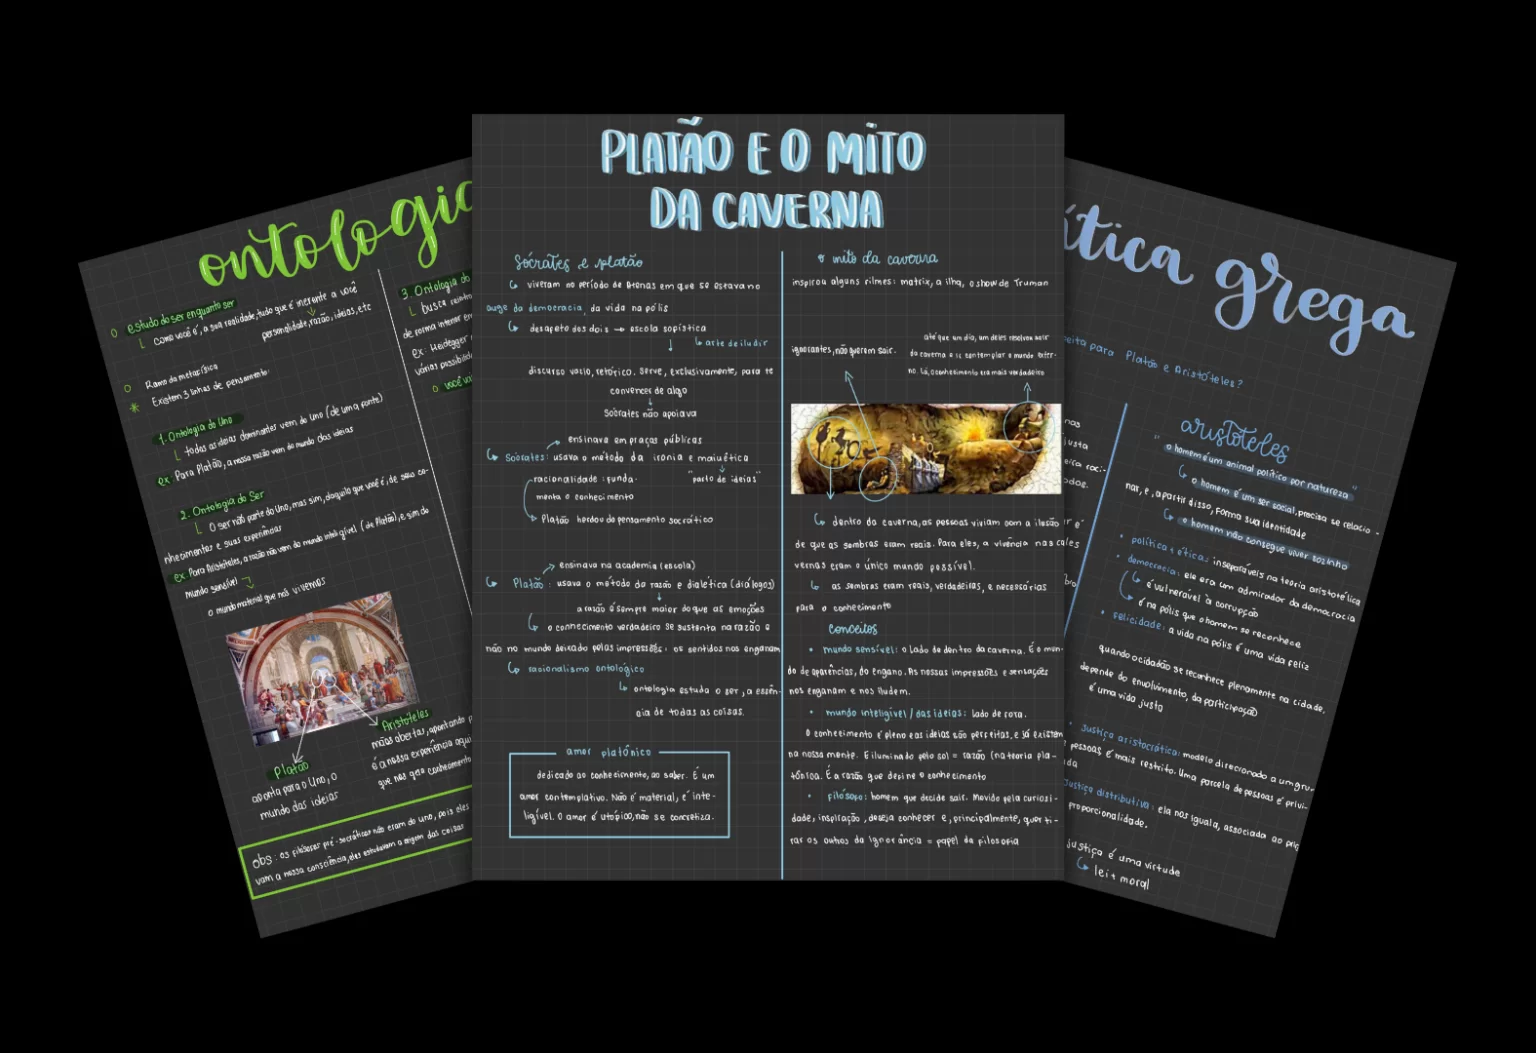 ontologia
estudo do ser enquanto ser
como você é, a sua realidade, tudo que é inerente a você
personalidade, razão, ideias, etc
Ramo da metafísica
Existem 3 linhas de pensamento:
1. Ontologia do Uno
todas as ideias dominantes vem do Uno (de uma fonte)
ex: Para Platão, a nossa razão vem do mundo das ideias
2. Ontologia do Ser
O ser não parte do Uno, mas sim, daquilo que você é, de seus co-
nhecimentos e suas experiências
ex: Para Aristóteles, a razão não vem do mundo inteligível (de Platão), e sim do
mundo sensível
o mundo material que nós vivemos
Platão
aponta para o Uno, o
mundo das ideias
Aristóteles
mãos abertas, apontando
é a nossa experiência aqui
que nos gera conhecimento
obs: os filósofos pré-socráticos não eram do uno, pois eles
vam a nossa consciência, eles estudavam a origem das coisas
3. Ontologia do
busca
de forma interior
ex: Heidegger
várias possibilid
você
PLATÃO E O MITO
DA CAVERNA
Sócrates e platão
viveram no período de Atenas em que se estava no
auge da democracia, da vida na pólis
desafeto dos dois → escola sofística
arte de iludir
discurso vazio, retótico. Serve, exclusivamente, para te
convencer de algo
Sócrates não apoiava
ensinava em praças públicas
Sócrates: usava o método da ironia e maiuêtica
racionalidade: funda-
menta o conhecimento
"parto de ideias"
Platão herdou do pensamento socrático
ensinava na academia (escola)
Platão: usava o método da razão e dialética (diálogos)
a razão é sempre maior do que as emoções
o conhecimento verdadeiro se sustenta na razão e
não no mundo deixado pelas impressões: os sentidos nos enganam
racionalismo ontológico
ontologia estuda o ser, a essên-
cia de todas as coisas.
amor platônico
dedicado ao conhecimento, ao saber. É um
amor contemplativo. Não é material, é inte-
ligível. O amor é utópico, não se concretiza.
o mito da caverna
inspirou alguns filmes: matrix, a ilha, o show de Truman
ignorantes, não querem sair.
até que um dia, um deles resolveu sair
da caverna e ir contemplar o mundo exter-
no. Lá, o conhecimento era mais verdadeiro
dentro da caverna, as pessoas viviam com a ilusão
de que as sombras eram reais. Para eles, a vivência nas ca-
vernas eram o único mundo possível.
as sombras eram reais, verdadeiras, e necessárias
para o conhecimento
conceitos
• mundo sensível: o lado de dentro da caverna. É o mun-
do de aparências, do engano. As nossas impressões e sensações
nos enganam e nos iludem.
• mundo inteligível/das ideias: lado de fora.
O conhecimento é pleno e as ideias são perfeitas, e já existem
na nossa mente. É iluminado pelo sol = razão (na teoria pla-
tônica. É a razão que define o conhecimento
• filósofo: homem que decide sair. Movido pela curiosi-
dade, inspiração, deseja conhecer e, principalmente, quer ti-
rar os outros da ignorância = papel da filosofia
ítica grega
eita para Platão e Aristóteles?
nas
justa
raci-
aristóteles
"o homem é um animal político por natureza"
o homem é um ser social, precisa se relacio-
nar, e, a partir disso, forma sua identidade
o homem não consegue viver sozinho
• política e ética: inseparáveis na teoria aristotélica
• democracia: ele era um admirador da democracia
é vulnerável à corrupção
é na pólis que o homem se reconhece
• felicidade: a vida na pólis é uma vida feliz
quando o cidadão se reconhece plenamente na cidade,
depende do envolvimento, da participação
é uma vida justa
• justiça aristocrática: modelo direcionado a um gru-
pessoas é mais restrito. Uma parcela de pessoas é privi-
da
justiça distributiva: ela nos iguala, associada ao
proporcionalidade.
justiça é uma virtude
lei + moral